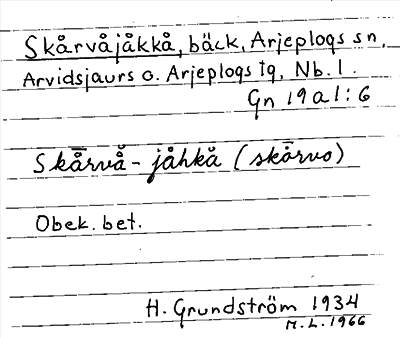 Skårvåjåkkå, bäck, Arjeplogs sn,
Arvidsjaurs o. Arjeplogs tg, Nb. l.
Gn 19 a l : 6
Skår̄vå̆ - jåhkå̆ (skår̄vo)
Obek. bet.
H. Grundström 1934
M.L. 1966